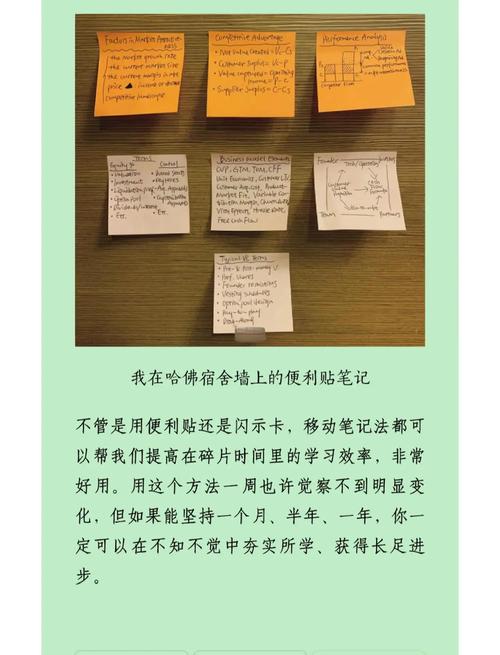 Factors in Market Attractive-
ness
the market growth rate
the current market size
the current margin in mkt
price
competitive landscape
Competitive Advantage
Total Value Created = V-C-S
Customer Surplus = V-P
Value captured = operating
income = P-C
Supplier Surplus = C-C-S
Performance Analysis
Terms
Equity $
Control
Valuation
Investments
Liquidation pref
Option pool
Dividends/interest
Etc.
Board Seats
Etc.
Business Model Elements
CVP, GTM, TOM, CFF
Unit Economics, Customer LTV,
Customer Acq. Cost, Product-
Market Fit, Variable Con-
tribution Margin, Churn Rate,
Viral Effects, Hurdle Rate,
Free Cash Flow
Founder
Tech/Operations
Investors
Customer
Value
Proposition
Cash
Flow
Formula
Team
Partners
Typical VC Terms
Pre- & Post-money V
Pref. Shares
Founder restrictions
Vesting schedules
Option pool design
Pay-to-play
Drag-along
我在哈佛宿舍墙上的便利贴笔记
不管是用便利贴还是闪示卡，移动笔记法都可
以帮我们提高在碎片时间里的学习效率，非常
好用。用这个方法一周也许觉察不到明显变
化，但如果能坚持一个月、半年、一年，你一
定可以在不知不觉中夯实所学、获得长足进
步。